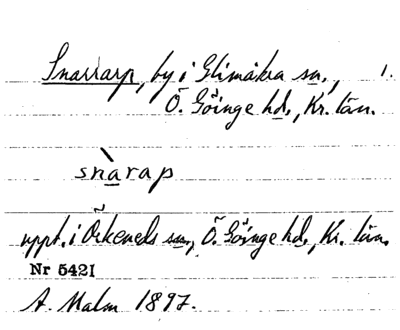 Snararp, by i Glimåkra sn., 1.
Ö. Göinge hd., Kr. län.
snàrap
uppt. i Örkeneds sn, Ö. Göinge hd., Kr. län.
Nr 5421
A. Malm 1897.